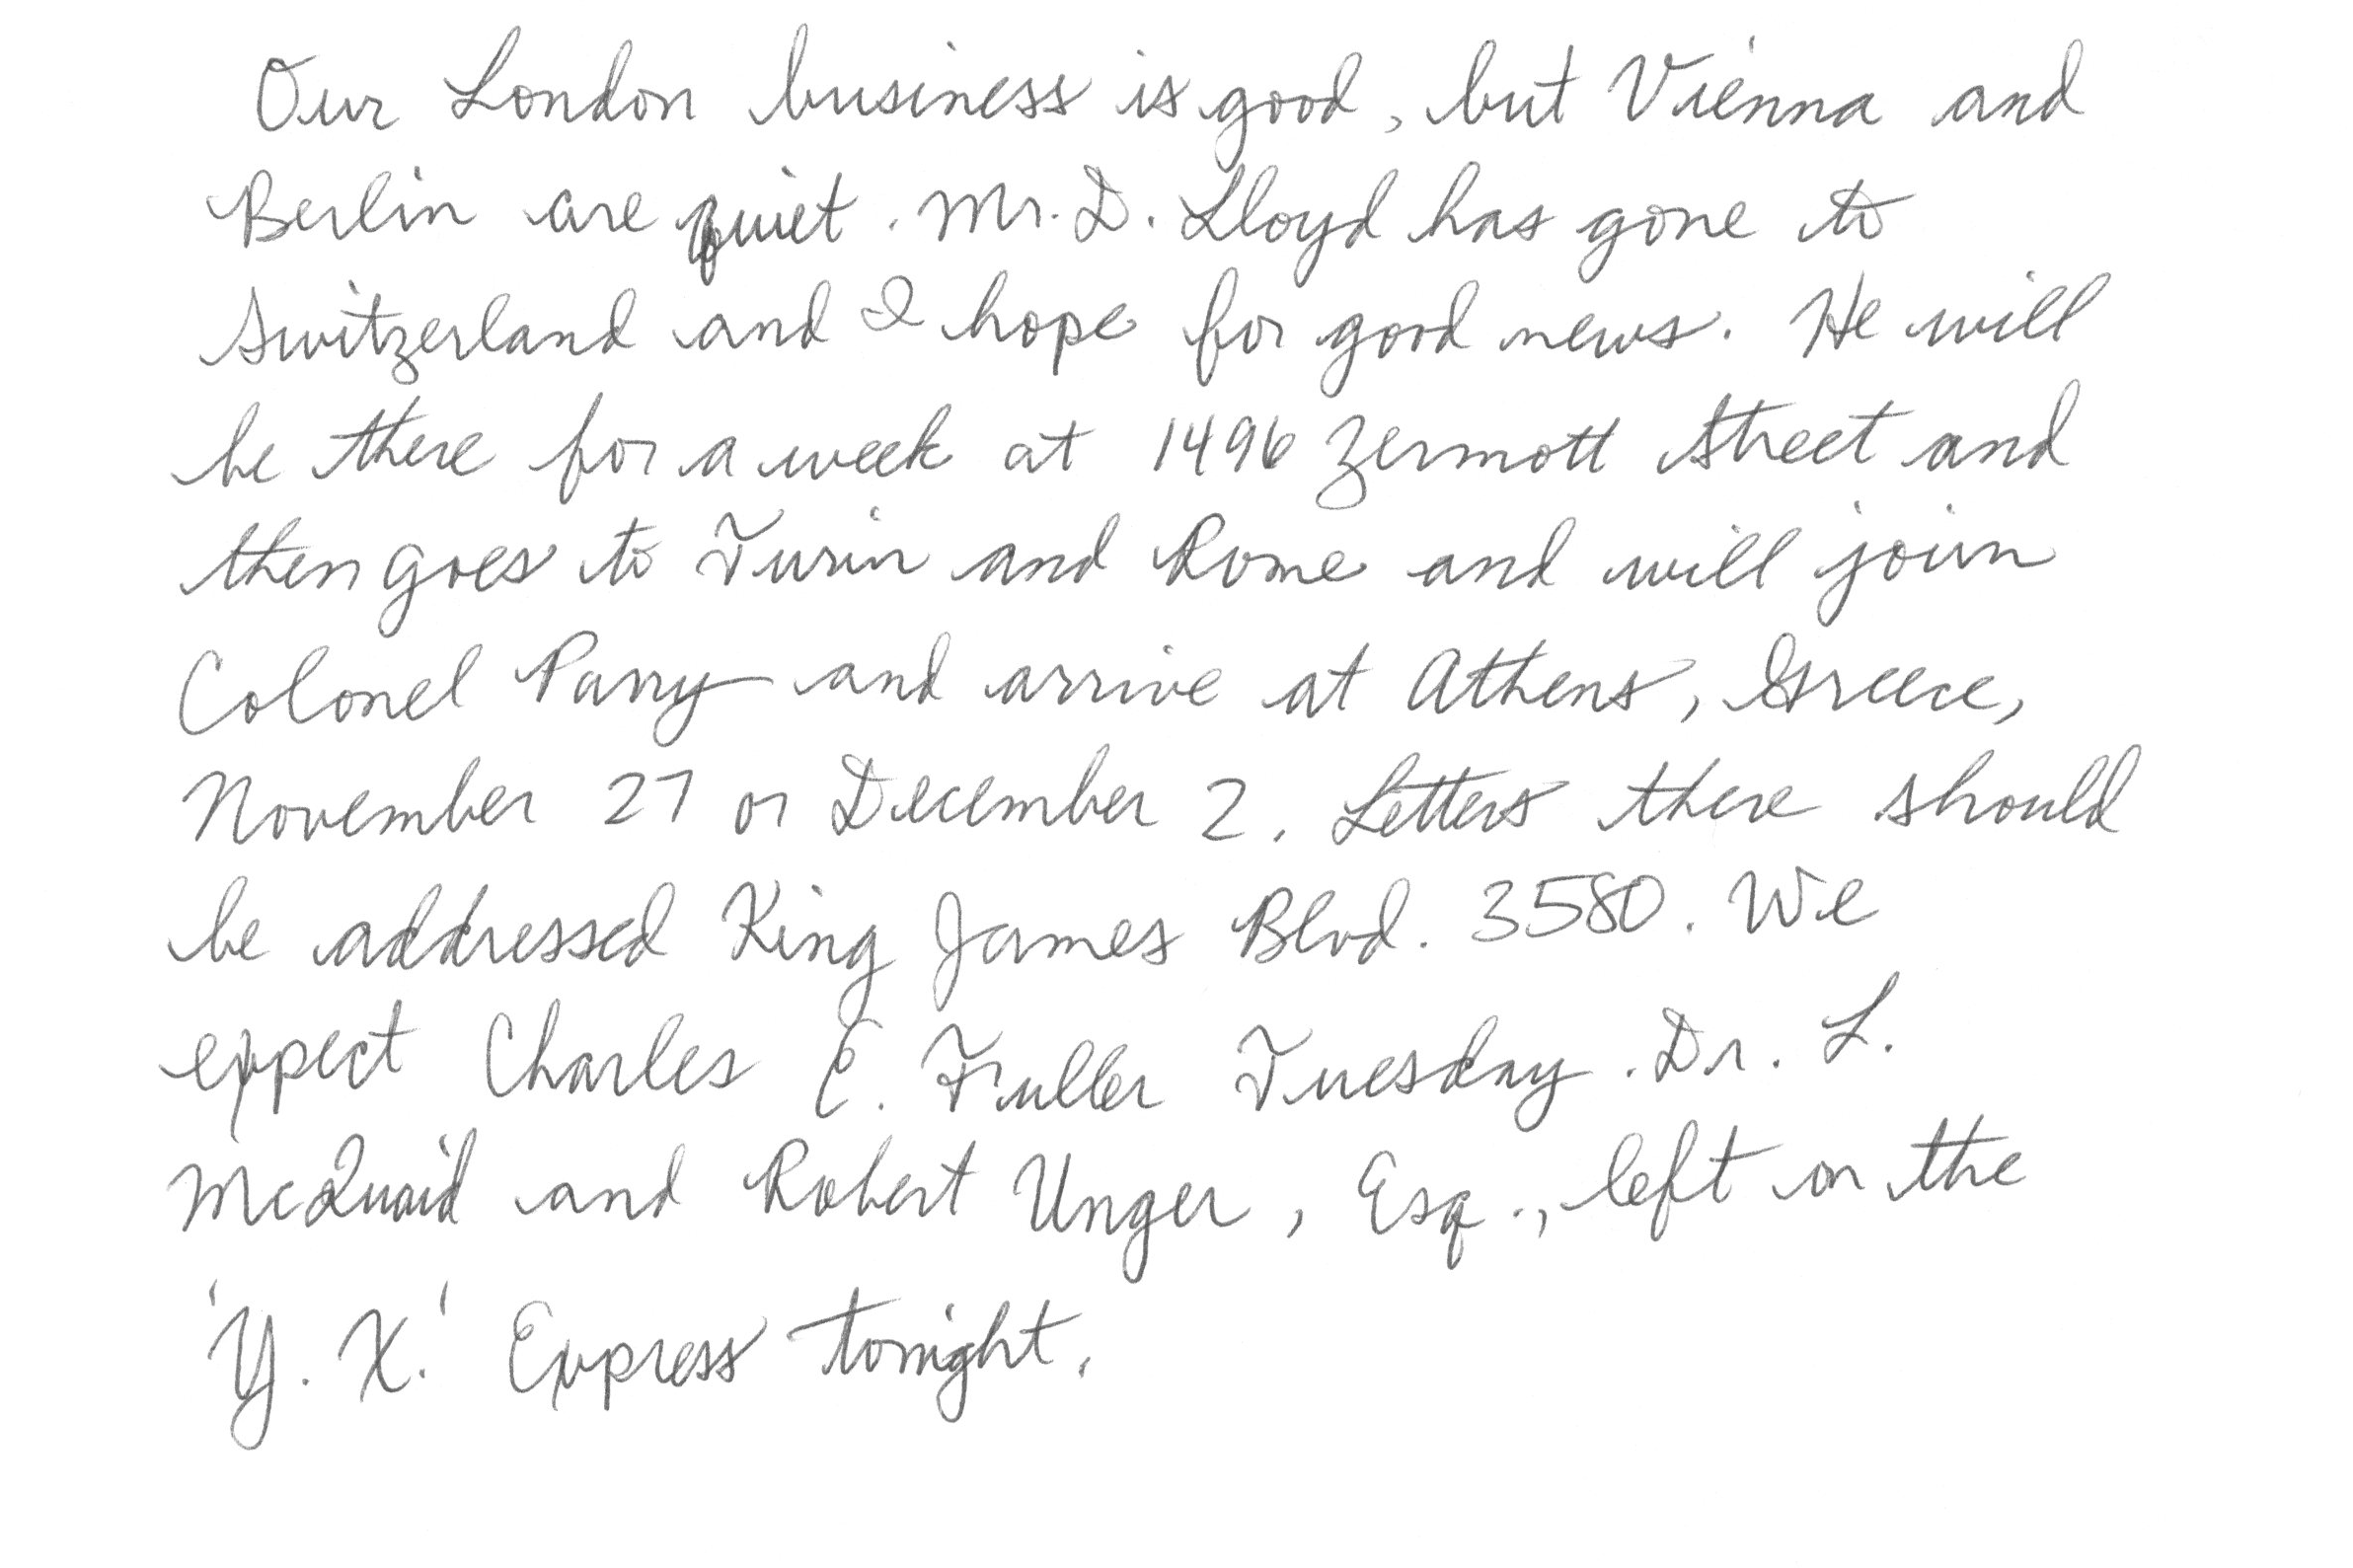 Our London business is good, but Vienna and
Berlin are quiet. Mr. D. Lloyd has gone to
Switzerland and I hope for good news. He will
be there for a week at 1496 Zermott Street and
then goes to Turin and Rome and will join
Colonel Parry and arrive at Athens, Greece,
November 27 or December 2. Letters there should
be addressed King James Blvd. 3580. We
expect Charles E. Fuller Tuesday. Dr. L.
McQuaid and Robert Unger, Esq., left on the
'Y. X.' Express tonight.